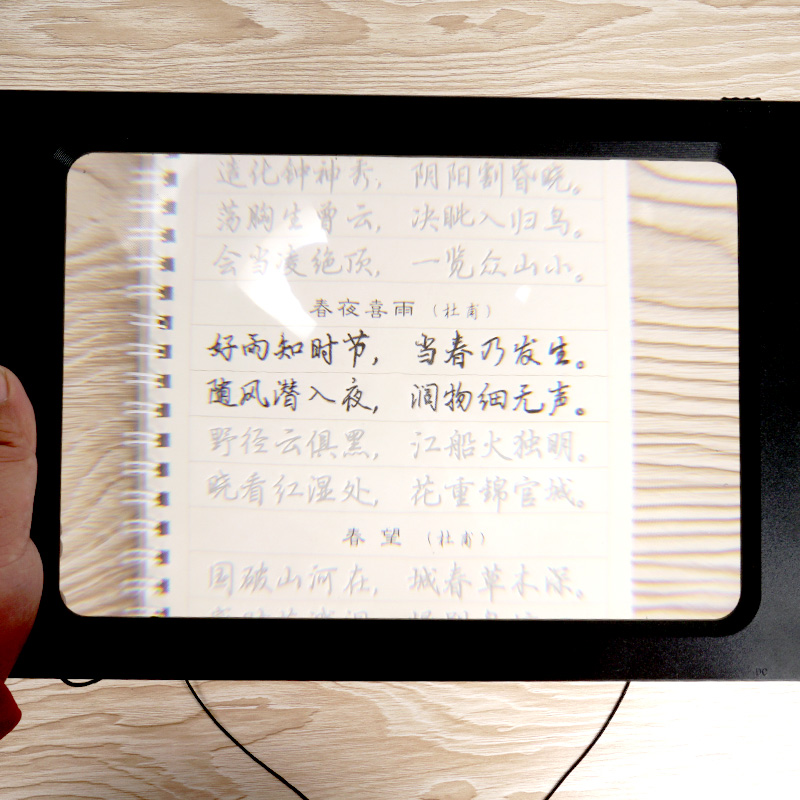 造化钟神秀，阴阳割昏晓。
荡胸生曾云，决眦入归鸟。
会当凌绝顶，一览众山小。
春夜喜雨（杜甫）
好雨知时节，当春乃发生。
随风潜入夜，润物细无声。
野径云俱黑，江船火独明。
晓看红湿处，花重锦官城。
春望（杜甫）
国破山河在，城春草木深。
DC